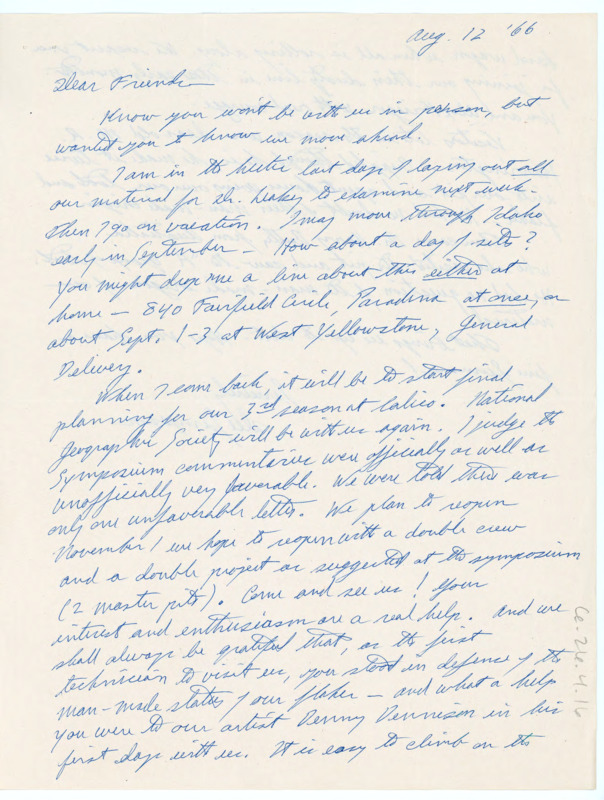 Aug. 12 '66
Dear Friends
Know you won't be with us in person, but
wanted you to know we move ahead.
I am in the hectic last days of laying out all
our material for Dr. Leakey to examine next week.
Then I go on vacation. I may move through Idaho
early in September – How about a day of silts?
You might drop me a line about this either at
home – 840 Fairfield Circle, Pasadena at once, or
about Sept. 1-3 at West Yellowstone, General
Delivery.
When I come back, it will be to start final
planning for our 3rd season at Calico. National
Geographic Society will be with us again. I judge the
Symposium commentaries were officially as well as
unofficially very favorable. We were told there was
only one unfavorable letter. We plan to reopen
November 1 we hope to reopen with a double crew
and a double project as suggested at the symposium
(2 master pits). Come and see us! Your
interest and enthusiasm are a real help. And we
shall always be grateful that, as the first
technician to visit us, you stood in defense of the
man-made status of our flakes – and what a help
you were to our artist Denny Dennison in his
first days with us. It is easy to climb on the
Ce.24.4.16